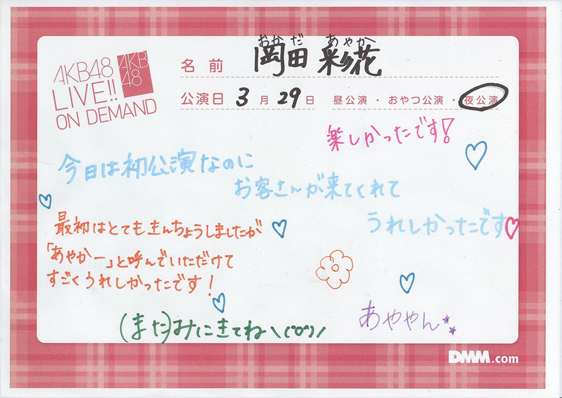 AKB48
LIVE!!
ON DEMAND
AKB
48
おかだ あやか
名前 岡田 彩花
公演日 3月29日 昼公演・おやつ公演・夜公演
楽しかったです!
今日は初公演なのに
お客さんが来てくれて
うれしかったです
最初はとてもきんちょうしましたが
「あやかー」と呼んでいただけて
すごくうれしかったです!
あややん
(また)みにきてね\(^o^)/
DMM.com